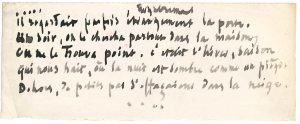 Il regardait parfois étrangement la porte.
Un soir, on le chercha partout dans la maison,
On ne le trouva point. c'était l'hiver, saison
qui nous hait, où la nuit est sombre comme un piège.
Dehors, des petits pas s'effaçaient dans la neige.